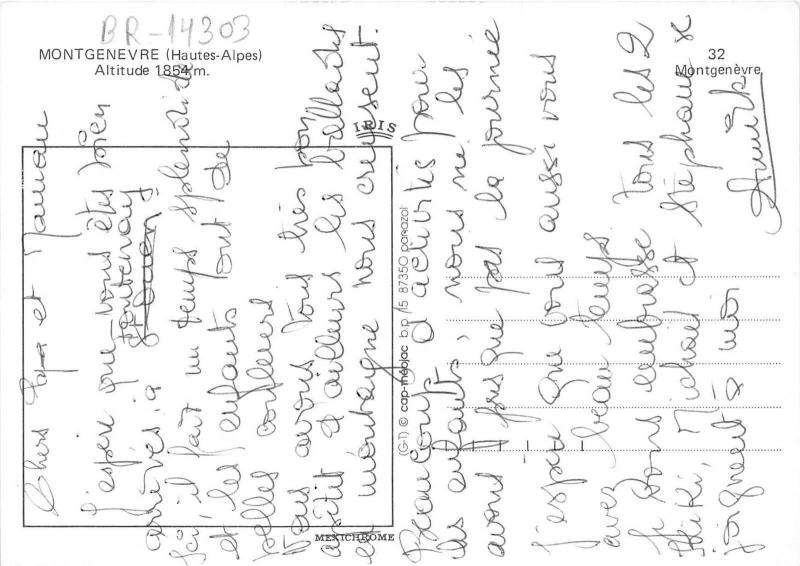 BR-14303
MONTGENEVRE (Hautes-Alpes)
Altitude 1854 m.
32
Montgenèvre
IRIS
MEXICHROME
(G-1) © cap-théojac b.p. 15 87350 panazol
Chers Papa et Maman
J'espère que vous êtes bien
arrivés à Fontenay
St Ouen
Ici, il fait un temps splendide
et les enfants ont de
belles couleurs
Nous avons tous très bon
appétit d'ailleurs les ballades
en montagne nous creusent.
Beaucoup d'activités pour
les enfants, nous ne les
avons presque pas la journée
J'espère que vous aussi vous
avez beau temps
Je vous embrasse tous les 2
Kiki, Michael et Stéphane se
joignent à moi